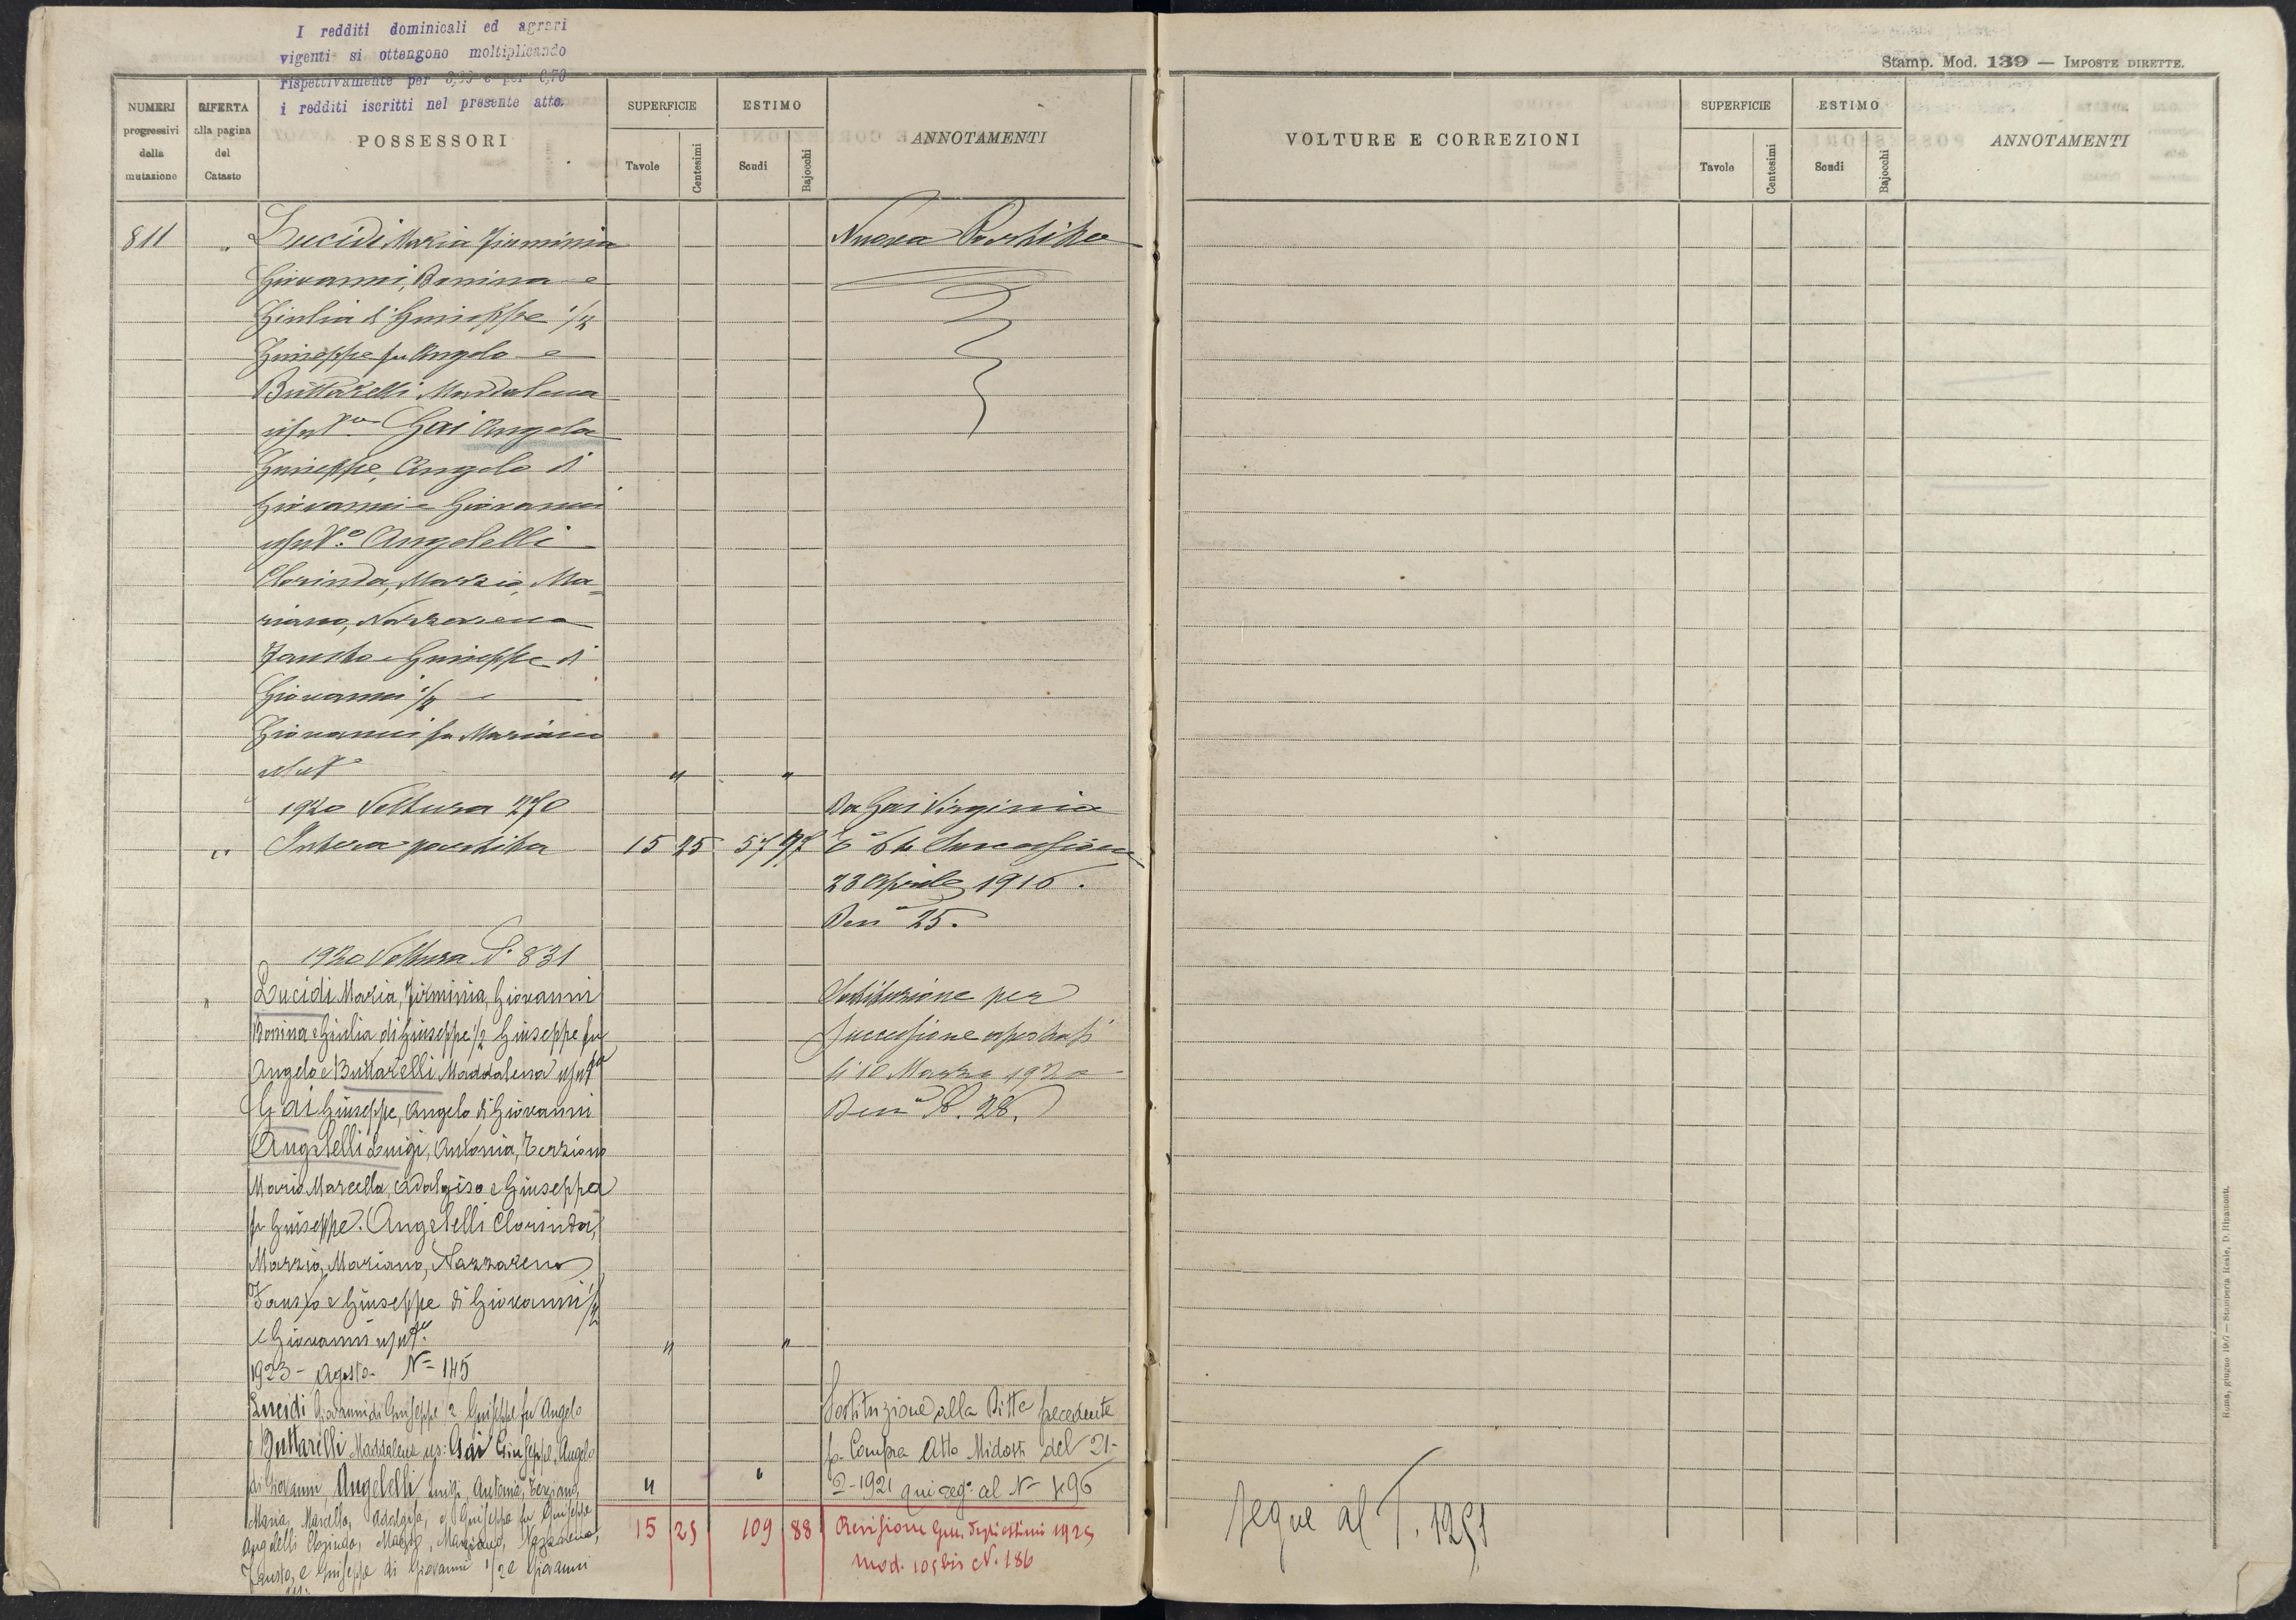 I redditi dominicali ed agrari
vigenti si ottengono moltiplicando
rispettivamente per e per 0,70
i redditi iscritti nel presente atto.
Stamp. Mod. 139 — IMPOSTE DIRETTE.
NUMERI progressivi della mutazione
RIFERTA alla pagina del Catasto
POSSESSORI
SUPERFICIE
Tavole
Centesimi
ESTIMO
Scudi
Bajocchi
ANNOTAMENTI
VOLTURE E CORREZIONI
SUPERFICIE
Tavole
Centesimi
ESTIMO
Scudi
Bajocchi
ANNOTAMENTI
811 " Lucidi Maria Firminia Nuova Partita
Giovanni, Bonina e
Giulia di Giuseppe 1/2
Giuseppe fu Angelo e
Buttarelli Maddalena
usuf. Gai Angela
Giuseppe, Angelo di
Giovanni e Giovanni
usuf.o Angelelli
Clorinda, Marzio, Ma=
riano, Nazzareno
Fausto e Giuseppe di
Giovanni 1/2 e
Giovanni fu Mariano
usuf.o " "
1920 Voltura 270 Da Gai Virginia
" Intera partita 15 25 57 97 Successione
23 Aprile 1916.
Den. 25.
1920 Voltura N. 831
" Lucidi Maria, Firminia, Giovanni Sostituzione per
Bonina e Giulia di Giuseppe 1/2 Giuseppe fu successione
Angelo e Buttarelli Maddalena usuf. li 10 Marzo 1920
Gai Giuseppe, Angelo di Giovanni Den. N. 28.
Angelelli Luigi, Antonia, Terziano
Maria Marcella, Adalgisa e Giuseppa
fu Giuseppe. Angelelli Clorinda,
Marzio, Mariano, Nazzareno
Fausto e Giuseppe di Giovanni 1/2
e Giovanni usuf. " "
1923 - Agosto - N= 145
Lucidi Giovanni di Giuseppe 1/2 Giuseppe fu Angelo Sostituzione alla Ditta precedente
e Buttarelli Maddalena us: Gai Giuseppe, Angelo p. Compra Atto Midossi del 21-
di Giovanni, Angelelli Luigi, Antonia, Terziano, " " 2-1921 qui reg. al N=
Maria, Marcella, Adalgisa, e Giuseppa fu Giuseppe 15 25 109 88 Revisione Gen. Degli estimi 1925
Angelelli Clorinda, Marzio, Mariano, Nazzareno, mod. 105 bis N. 186
Fausto, e Giuseppe di Giovanni 1/2 e Giovanni
us:
segue al T. 1251
Roma, giugno — Stamperia Reale, D. Ripamonti.